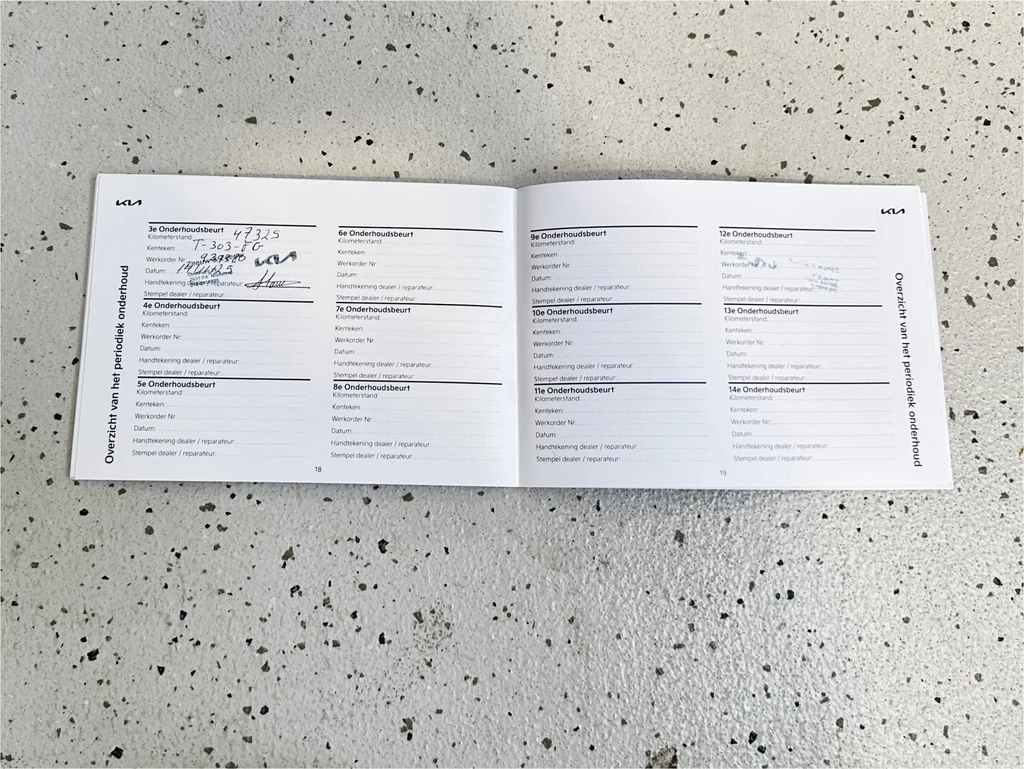 KIA
Overzicht van het periodiek onderhoud
3e Onderhoudsbeurt
Kilometerstand: 47325
Kenteken: T-303-
Werkorder Nr:
KIA
Datum:
Handtekening dealer / reparateur:
Stempel dealer / reparateur:
4e Onderhoudsbeurt
Kilometerstand:
Kenteken:
Werkorder Nr:
Datum:
Handtekening dealer / reparateur:
Stempel dealer / reparateur:
5e Onderhoudsbeurt
Kilometerstand:
Kenteken:
Werkorder Nr:
Datum:
Handtekening dealer / reparateur:
Stempel dealer / reparateur:
6e Onderhoudsbeurt
Kilometerstand:
Kenteken:
Werkorder Nr:
Datum:
Handtekening dealer / reparateur:
Stempel dealer / reparateur:
7e Onderhoudsbeurt
Kilometerstand:
Kenteken:
Werkorder Nr:
Datum:
Handtekening dealer / reparateur:
Stempel dealer / reparateur:
8e Onderhoudsbeurt
Kilometerstand:
Kenteken:
Werkorder Nr:
Datum:
Handtekening dealer / reparateur:
Stempel dealer / reparateur:
18
KIA
9e Onderhoudsbeurt
Kilometerstand:
Kenteken:
Werkorder Nr:
Datum:
Handtekening dealer / reparateur:
Stempel dealer / reparateur:
10e Onderhoudsbeurt
Kilometerstand:
Kenteken:
Werkorder Nr:
Datum:
Handtekening dealer / reparateur:
Stempel dealer / reparateur:
11e Onderhoudsbeurt
Kilometerstand:
Kenteken:
Werkorder Nr:
Datum:
Handtekening dealer / reparateur:
Stempel dealer / reparateur:
12e Onderhoudsbeurt
Kilometerstand:
Kenteken:
Werkorder Nr:
Datum:
Handtekening dealer / reparateur:
Stempel dealer / reparateur:
13e Onderhoudsbeurt
Kilometerstand:
Kenteken:
Werkorder Nr:
Datum:
Handtekening dealer / reparateur:
Stempel dealer / reparateur:
14e Onderhoudsbeurt
Kilometerstand:
Kenteken:
Werkorder Nr:
Datum:
Handtekening dealer / reparateur:
Stempel dealer / reparateur:
Overzicht van het periodiek onderhoud
19